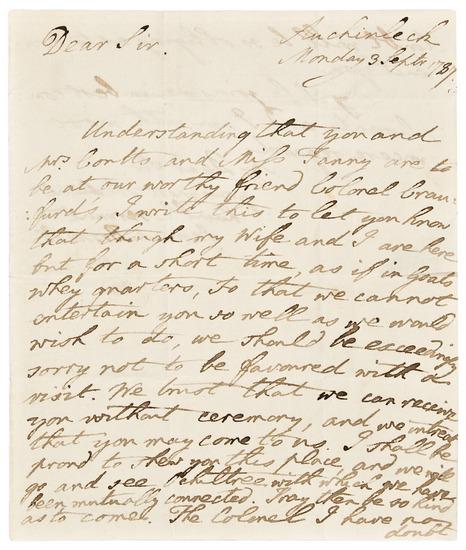 Dear Sir. Auchinleck
Monday 3 Septr. 1787.
Understanding that you and
Mrs. Coutts and Miss Fanny are to
be at our worthy friend Colonel Crau-
:furd's, I write this to let you know
that though my Wife and I are here
but for a short time, as if in Goats
whey quarters, so that we cannot
entertain you so well as we would
wish to do, we should be exceeding
sorry not to be favoured with a
visit. We trust that we can receive
you without ceremony, and we intreat
that you may come to us. I shall be
proud to shew you this place, and we will
go and see Ochiltree with which we have
been mutually connected. Pray then be so kind
as to come. The Colonel I have no
doubt